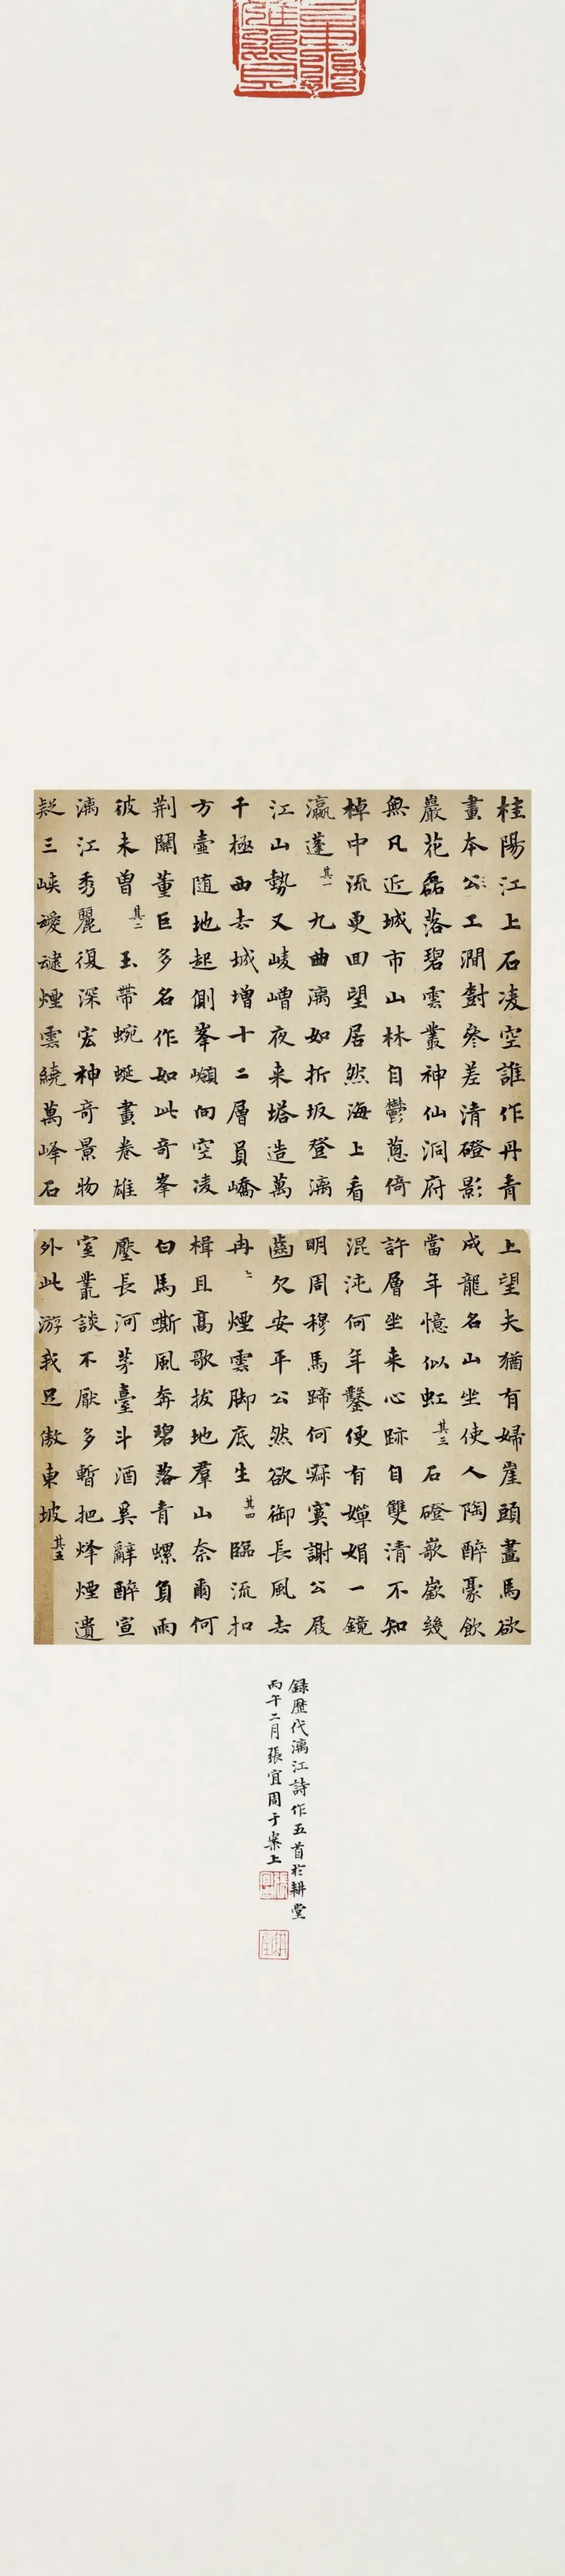 桂陽江上石凌空誰作丹青
畫本公工澗對參差清磴影
巖花磊落碧雲叢神仙洞府
無凡近城市山林自鬱蔥倚
棹中流更回望居然海上看
瀛蓬其一九曲漓如折坂登漓
江山勢又崚嶒夜来塔造萬
千極西去城增十二層員嶠
方壺隨地起側峯巔向空凌
荆關董巨多名作如此奇峯
彼未曾其二玉帶蜿蜒畫卷雄
漓江秀麗復深宏神奇景物
疑三峽靉靆煙雲繞萬峰石
上望夫猶有婦崖頭畫馬欲
成龍名山坐使人陶醉豪飲
當年憶似虹其三石磴嶔嶔幾
許層坐来心跡自雙清不知
混沌何年鑿便有嬋娟一鏡
明周穆馬蹄何寂寞謝公屐
齒欠安平公然欲御長風去
冉〻煙雲脚底生其四臨流扣
楫且高歌拔地羣山奈爾何
白馬嘶風奔碧落青螺負雨
壓長河茅臺斗酒奚辭醉宣
室叢談不厭多暫把烽煙遺
外此游我足傲東坡其五
録歷代漓江詩作五首於耕堂
丙午二月張宜周于案上